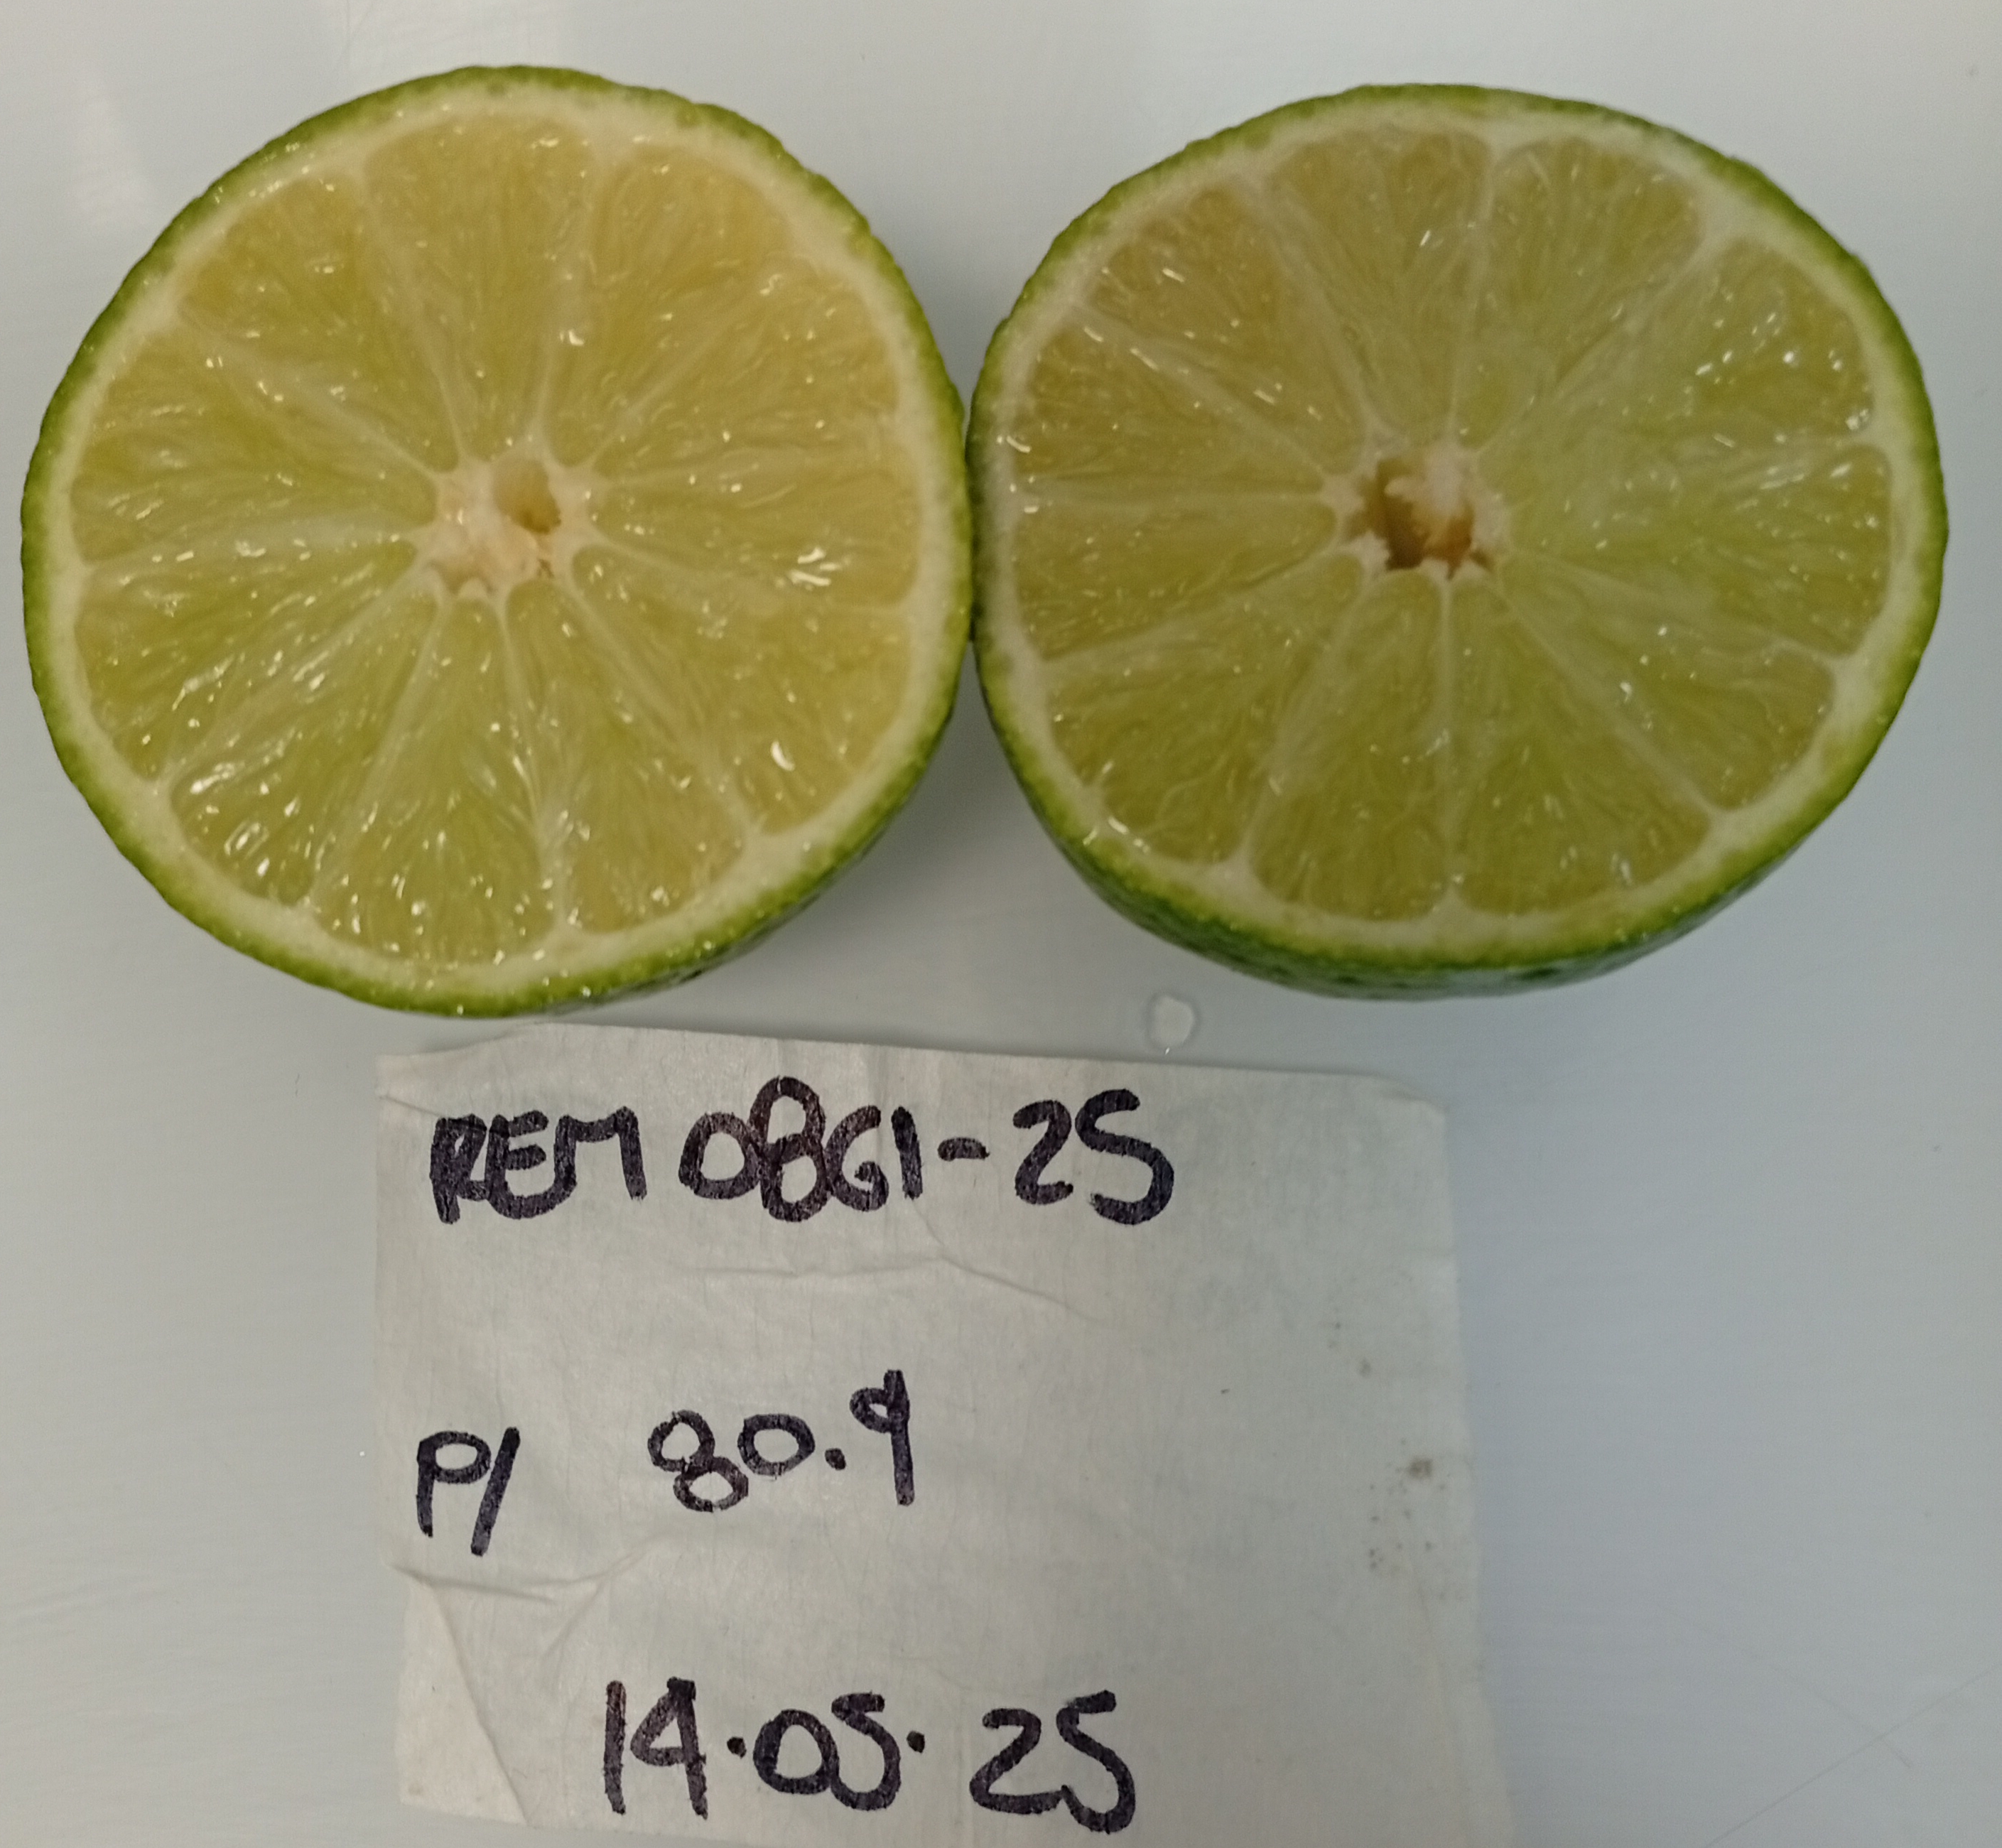 REM 0861-25
P/ 80.9
14.05.25